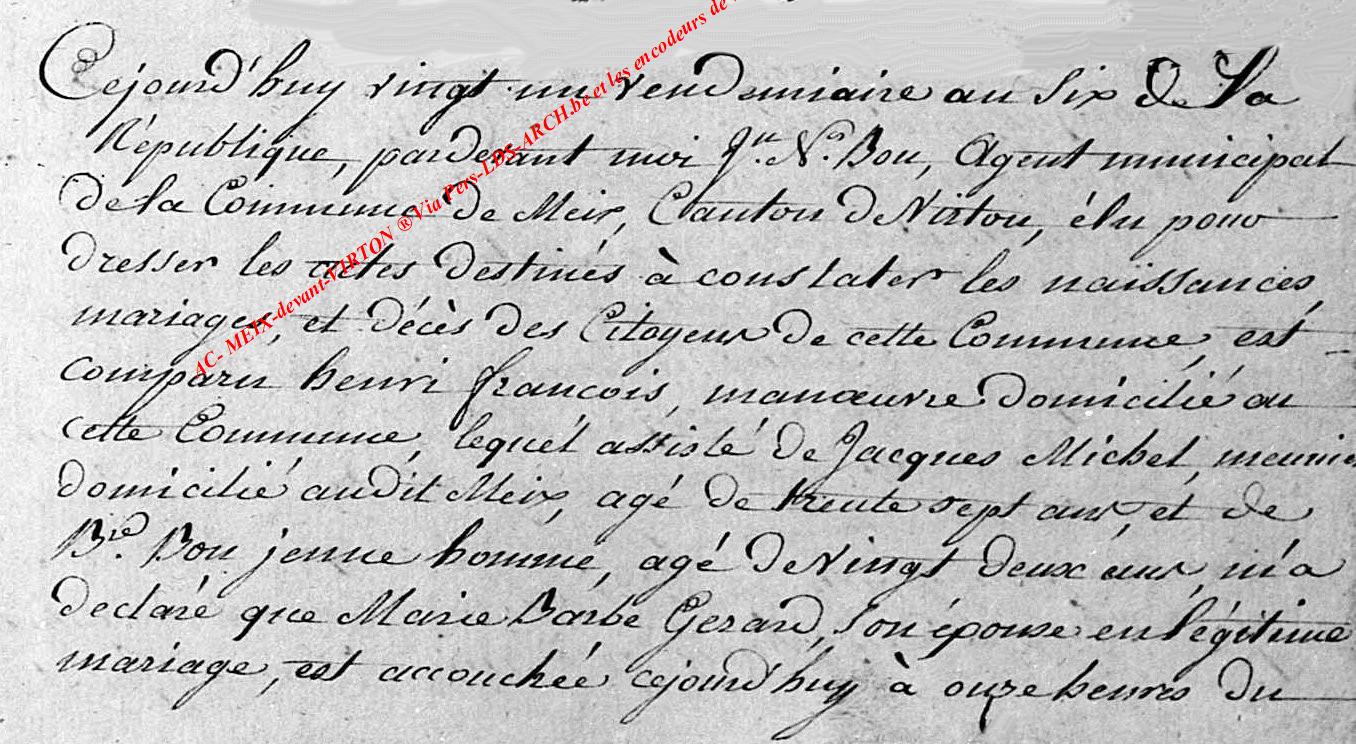 Cejourd'huy vingt un vendemiaire an six de la
République, pardevant moi Jn. Ns. Bon, Agent municipal
de la Commune de Meix, Canton de Virton, élu pour
dresser les actes destinés à constater les naissances,
mariages, et décès des Citoyens de cette Commune, est
comparu henri françois, manœuvre domicilié en
cette Commune, lequel assisté de Jacques Michel, meunier
domicilié audit Meix, agé de trente sept ans, et de
Bon jeune homme, agé de vingt deux ans, m'a
declaré que Marie Barbe Gerard, son épouse en légitime
mariage, est accouchée cejourd'huy à onze heures du
AC- MEIX-devant-VIRTON ® Via Pers-LDS-ARCH.be et les encodeurs de